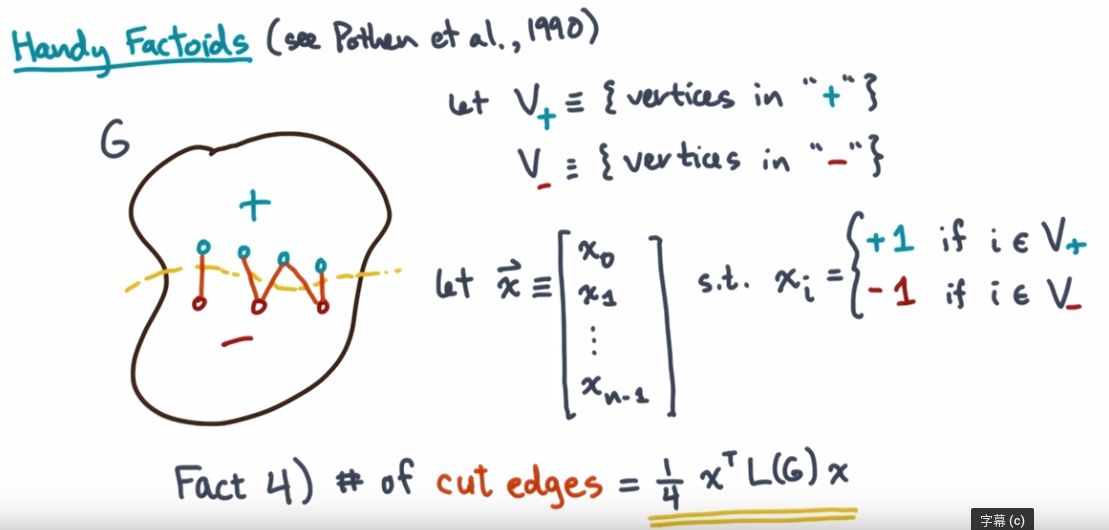 Handy Factoids (see Pothen et al., 1990)
let V₊ ≡ { vertices in "+" }
G
V₋ ≡ { vertices in "-" }
+
let x⃗ ≡ [ x₀ x₁ ⋮ xₙ₋₁ ] s.t. xᵢ = { +1 if i ∈ V₊
-1 if i ∈ V₋
-
Fact 4) # of cut edges = 1/4 xᵀ L(G) x
字幕 (c)